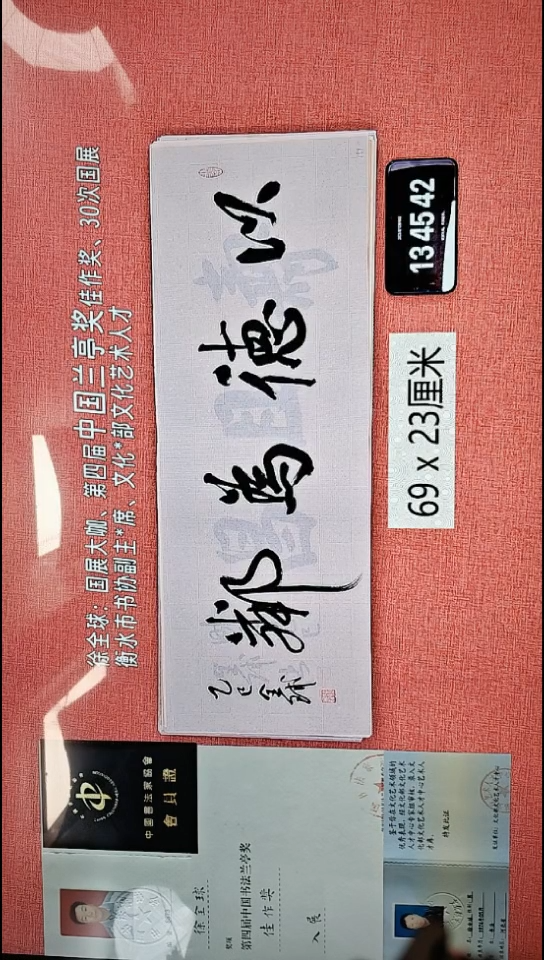 徐全球：国展大咖、第四届中国兰亭奖佳作奖、30次国展
衡水市书协副主*席、文化*部文化艺术人才
以德為鄰
乙巳全球
13 45 42
69 x 23厘米
中國書法家協會
會員證
徐全球
第四届中国书法兰亭奖
佳作奖
入展
特发此证